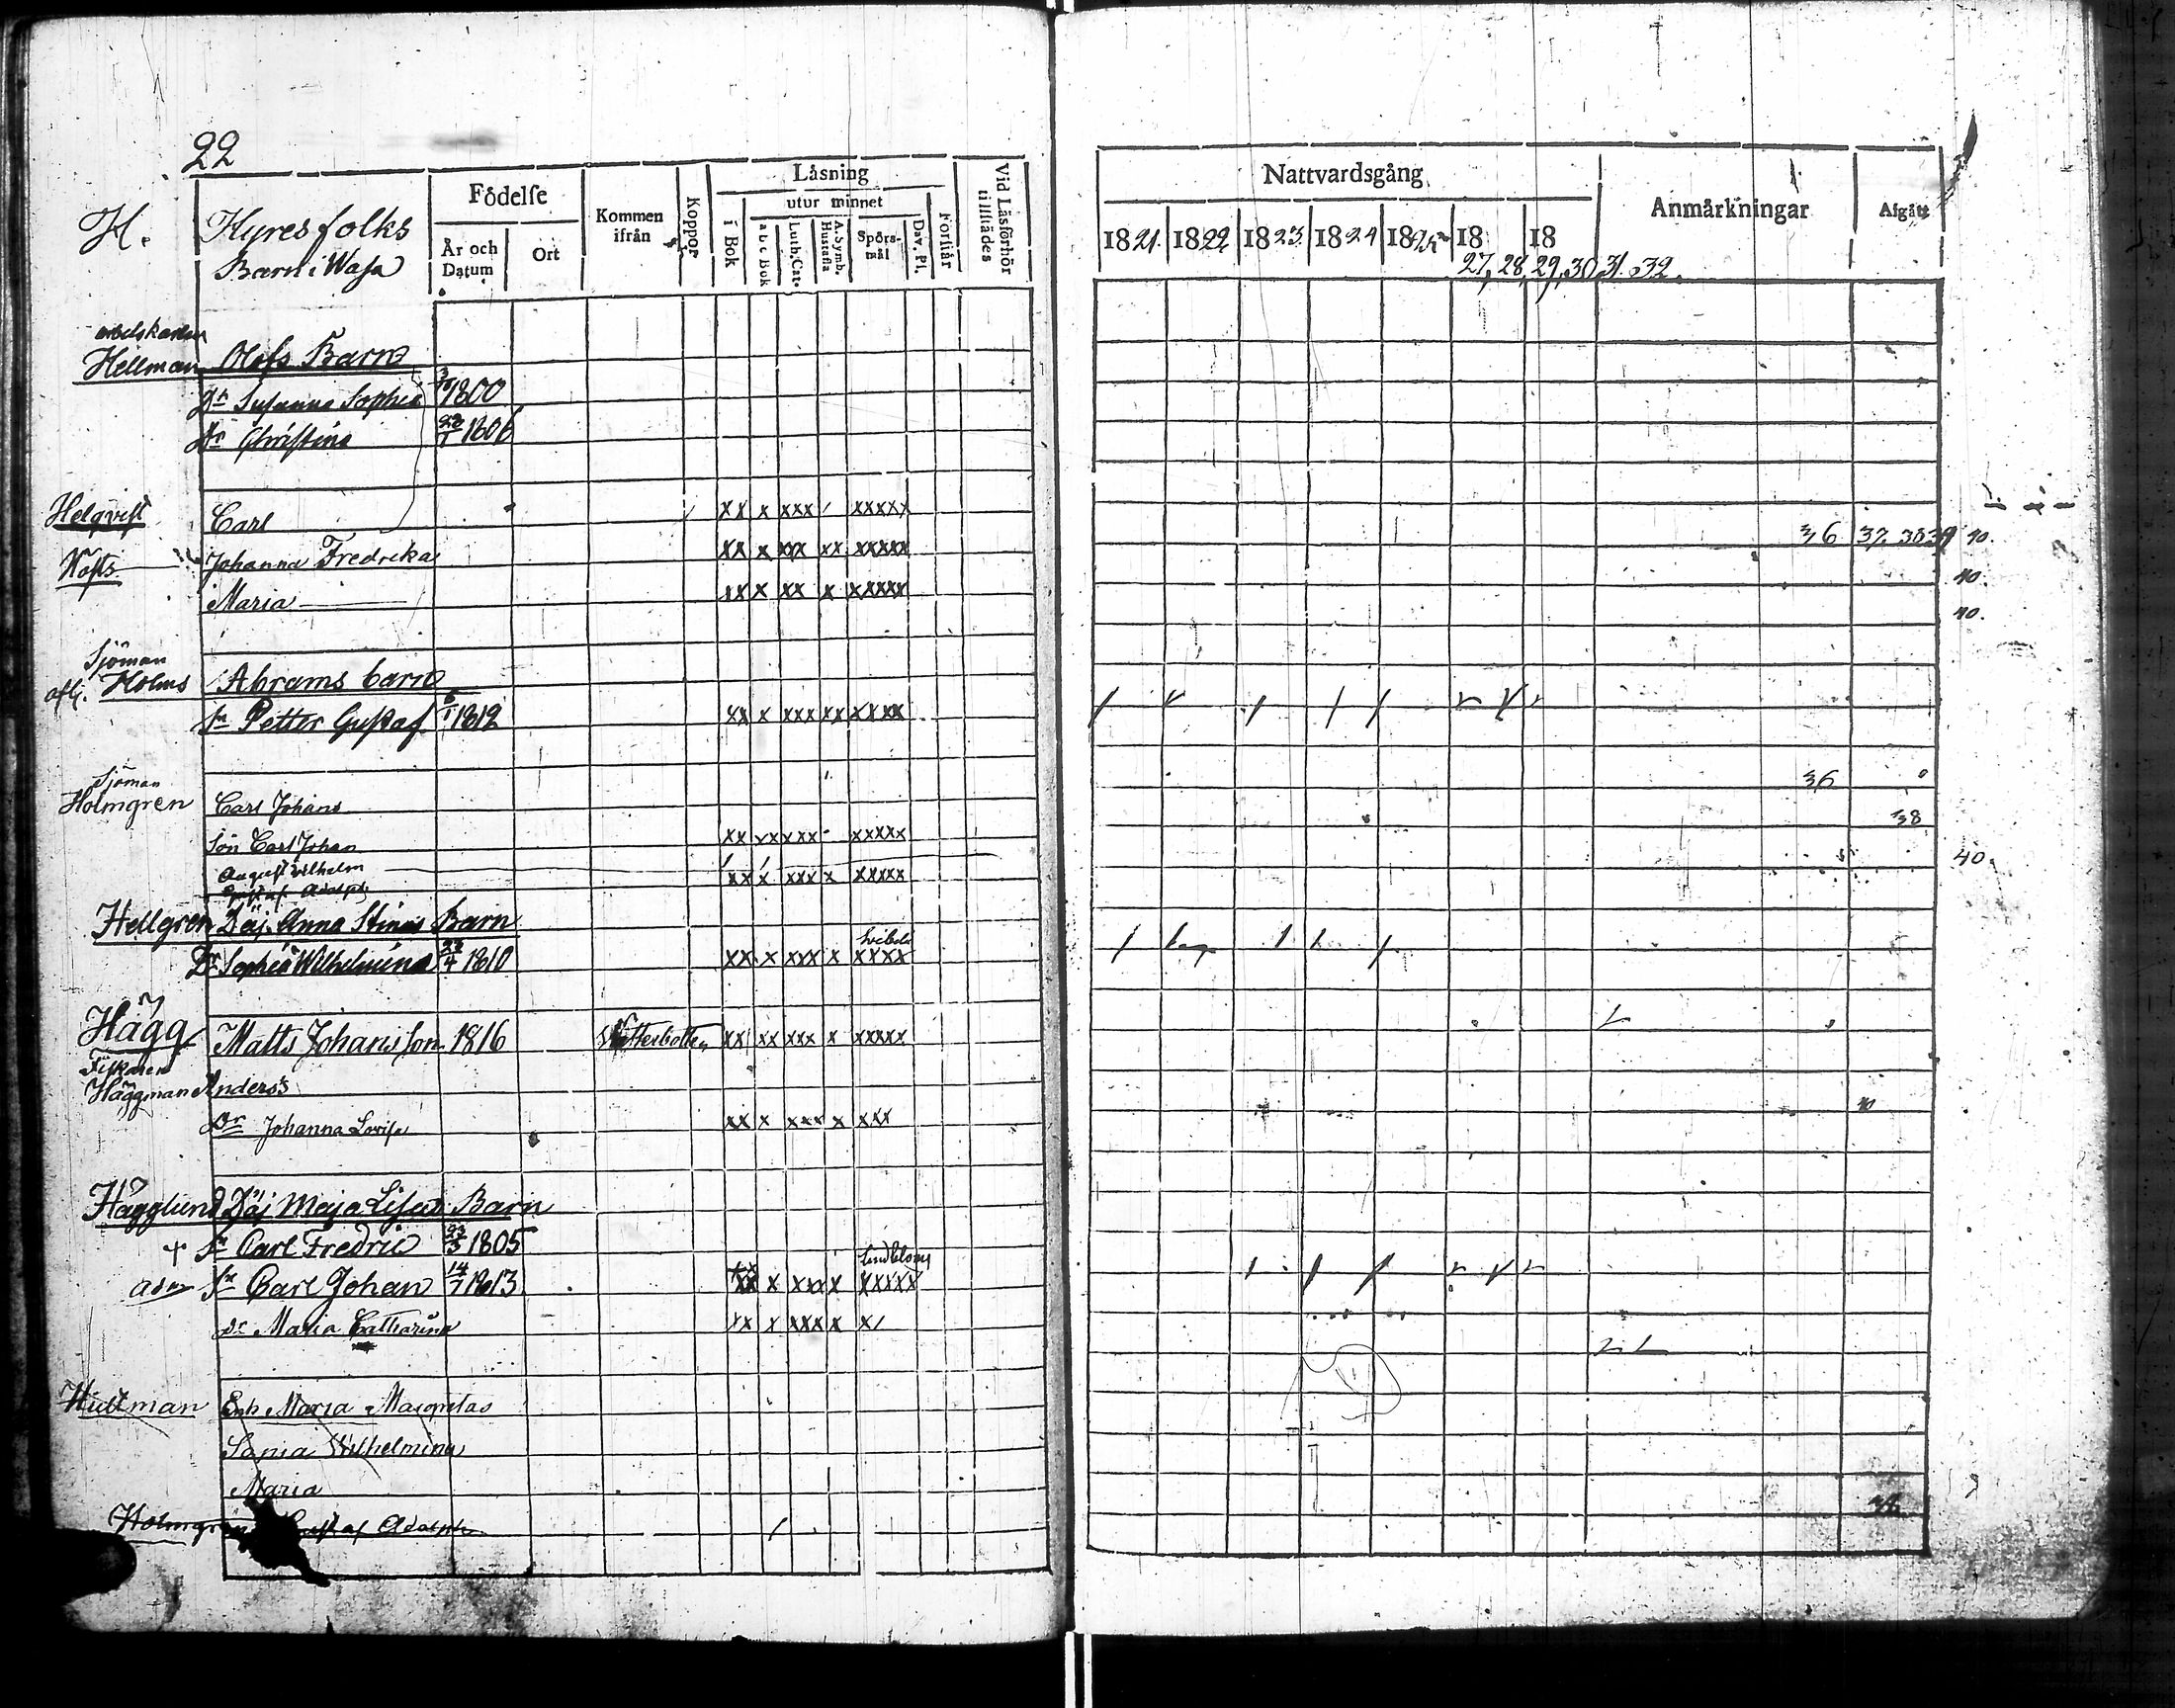 22
H. Hyresfolks
Barn i Wasa
Födelse
År och Datum
Ort
Kommen ifrån
Koppor
Läsning
i Bok
utur minnet
abc Bok
Luth. Cat.
A. Symb. Hustafla
Spörsmål
Dav. Ps.
Förstår
Vid Läsförhör tillstädes
Nattvardsgång
1821. 1822 1823. 1824 1825 18 18
27, 28, 29, 30 31. 32.
Anmärkningar
Afgått
Hellman Olofs Barn
Dr Susanna Sophia 3/10 1800
Dr Christina 28/1 1806
Helqvist Carl xx x xxx / xxxxx
36 37. 38 39 40.
Johanna Fredrika xx x xxx xx xxxxx
40.
Maria xx x xx x xxxxx
40.
Sjöman
Holms Abrams barn
Sn Petter Gustaf 6/1 1812 xx x xxx xx xxxx
Sjöman
Holmgren Carl Johans
36
Son Carl Johan xx xx xxx xxxxx
38
August Wilhelm
Gustaf Adolph xx x xxx x xxxxx
40.
Hellgren Däj. Anna Stinas Barn
Dr Sophia Wilhelmina 23/4 1810 xx x xxx x xxxx
Hägg Matts Johansson 1816 xx xx xxx x xxxxx
Fiskaren
Häggman Anders's
Dr Johanna Lovisa xx x xxx x xxx
Hägglund Däj Maja Lisas Barn
+ Sn Carl Fredric 23/3 1805
Sn Carl Johan 14/7 1813 xx x xxx x xxxxx
Lindblom
Dr Maria Catharina xx x xxx x x/
Hultman Enk Maria Margretas
Wilhelmina
Maria
Holmgren Gustaf Adolph